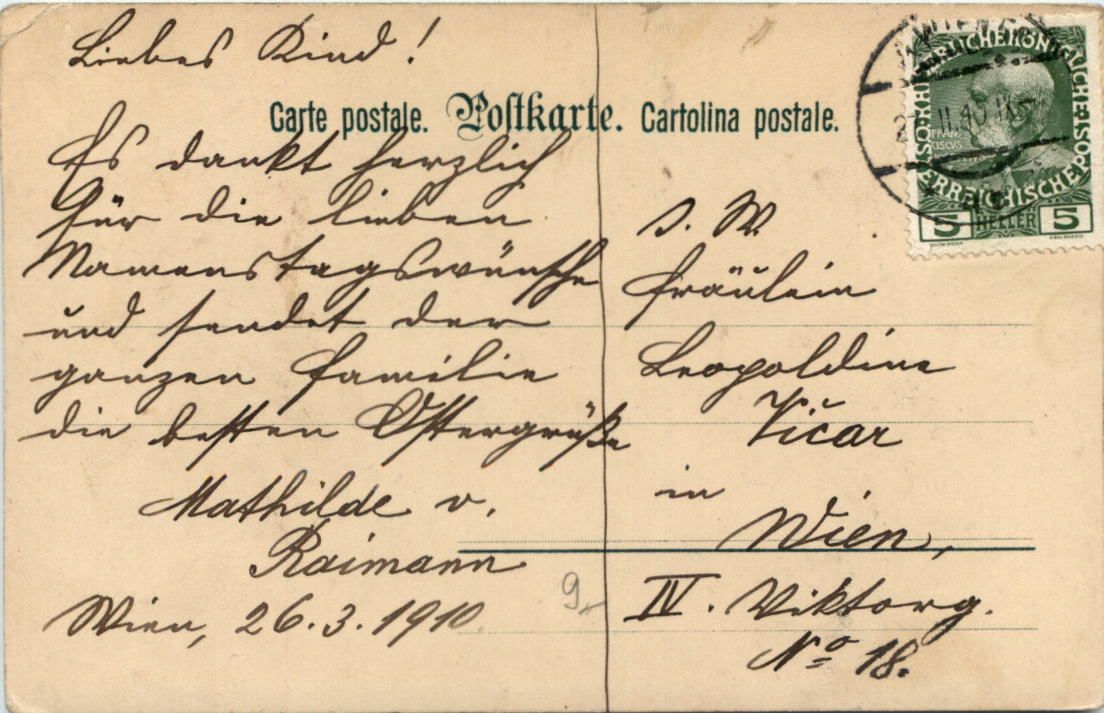 Liebes Kind!
Carte postale. Postkarte. Cartolina postale.
Es dankt herzlich
für die lieben
Namenstagswünsche
und sendet der
ganzen Familie
die besten Ostergrüße
Mathilde v.
Raimann
Wien, 26.3.1910
S. W.
Fräulein
Leopoldine
Vičar
in
Wien,
IV. Viktorg.
No 18.
9
KAISERLICHE KÖNIGLICHE ÖSTERREICHISCHE POST
FRAN
CISCVS
5 HELLER 5